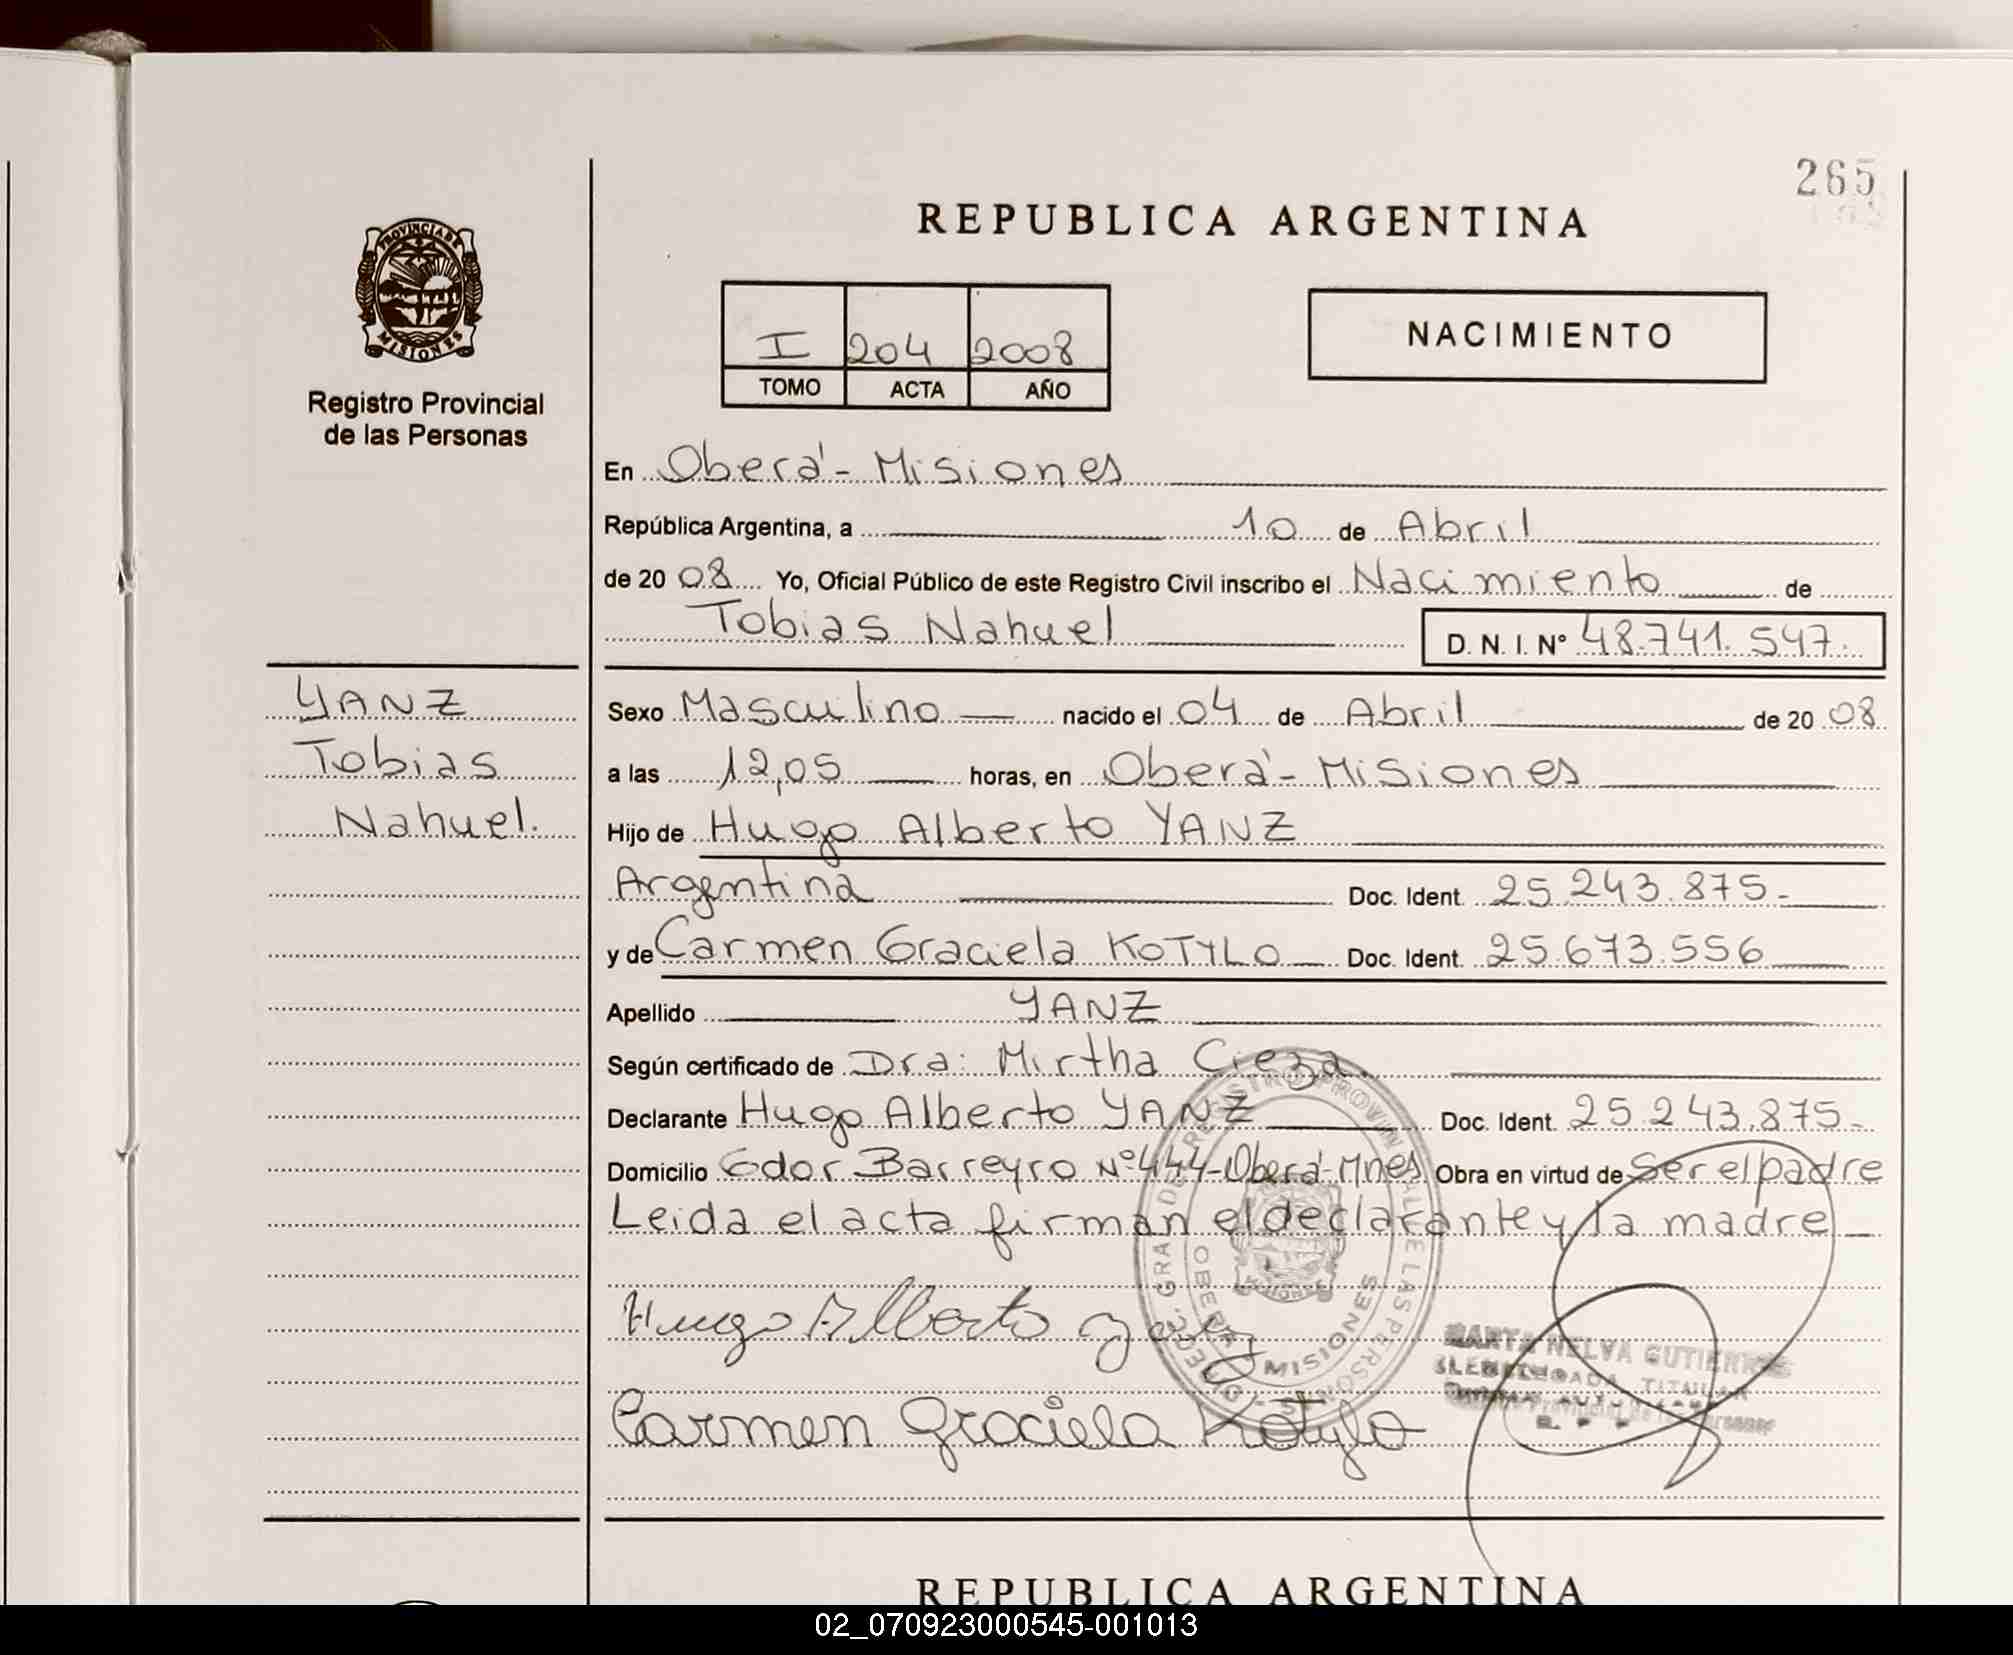 265
REPUBLICA ARGENTINA
PROVINCIA DE
MISIONES
Registro Provincial
de las Personas
I 204 2008
TOMO ACTA AÑO
NACIMIENTO
En Oberá - Misiones
República Argentina, a 10 de Abril
de 20 08 Yo, Oficial Público de este Registro Civil inscribo el Nacimiento de
Tobias Nahuel D. N. I. Nº 48.741.547.
YANZ
Tobias
Nahuel.
Sexo Masculino nacido el 04 de Abril de 20 08
a las 12,05 horas, en Oberá - Misiones
Hijo de Hugo Alberto YANZ
Argentina Doc. Ident. 25.243.875-
y de Carmen Graciela KOTYLO Doc. Ident. 25.673.556
Apellido YANZ
Según certificado de Dra: Mirtha Cieza.
Declarante Hugo Alberto YANZ Doc. Ident. 25.243.875-
Domicilio Gdor Barreyro Nº 444-Oberá-Mnes Obra en virtud de Ser el padre
Leida el acta firman el declarante y la madre
Hugo Alberto Yanz
Carmen Graciela Kotylo
OBERA MISIONES
MARTA NELVA GUTIERREZ
TITULAR
REPUBLICA ARGENTINA
02_070923000545-001013